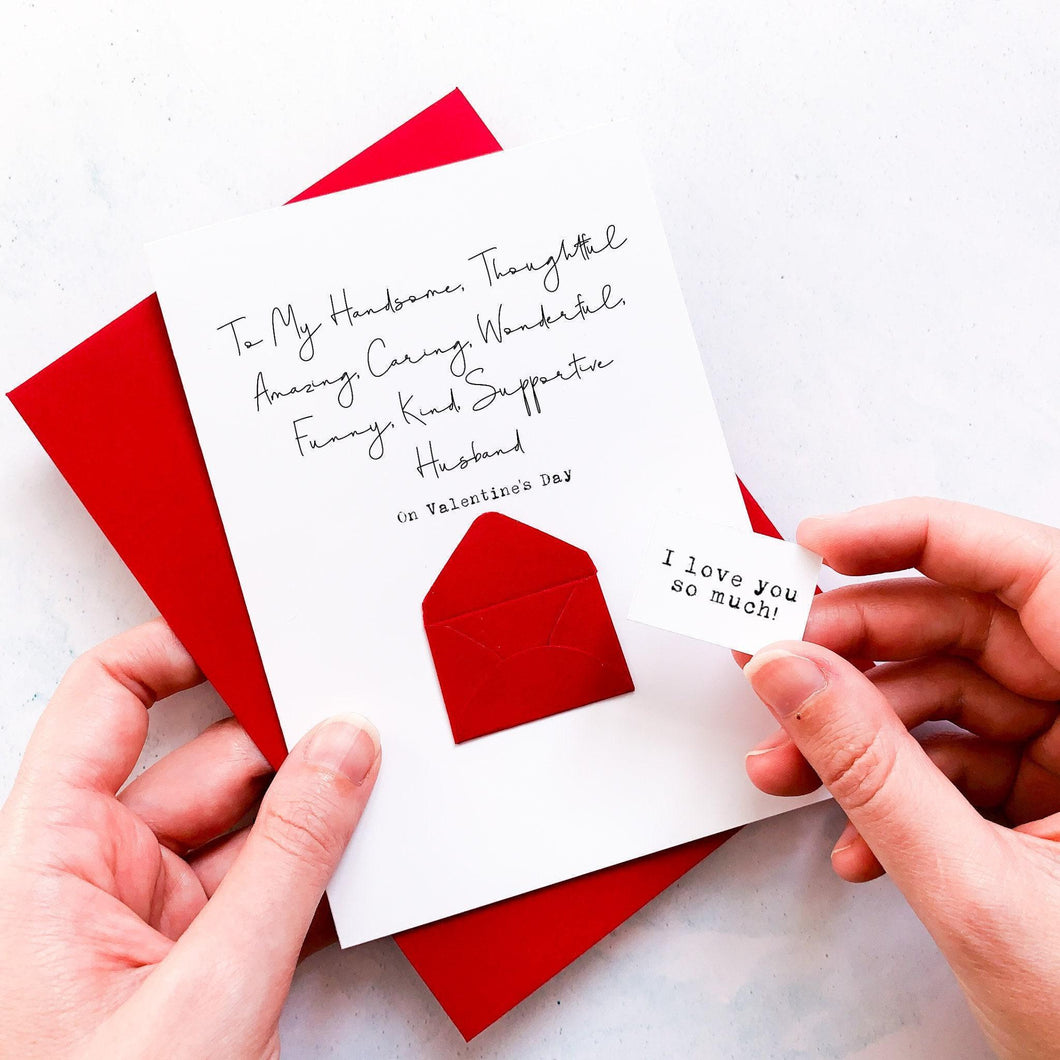 To My Handsome, Thoughtful
Amazing, Caring, Wonderful,
Funny, Kind, Supportive
Husband
On Valentine's Day
I love you
so much!